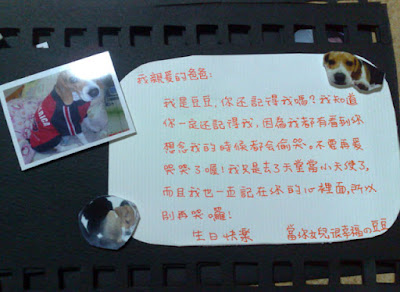 我親愛的爸爸:
我是豆豆,你還記得我嗎?我知道
你一定還記得我,因為我都有看到你
想念我的時候都會偷哭。不要再愛
哭哭了喔!我只是去了天堂當小天使了,
而且我也一直記在你的心裡面,所以
別再哭囉!
生日快樂 當你女兒很幸福の豆豆